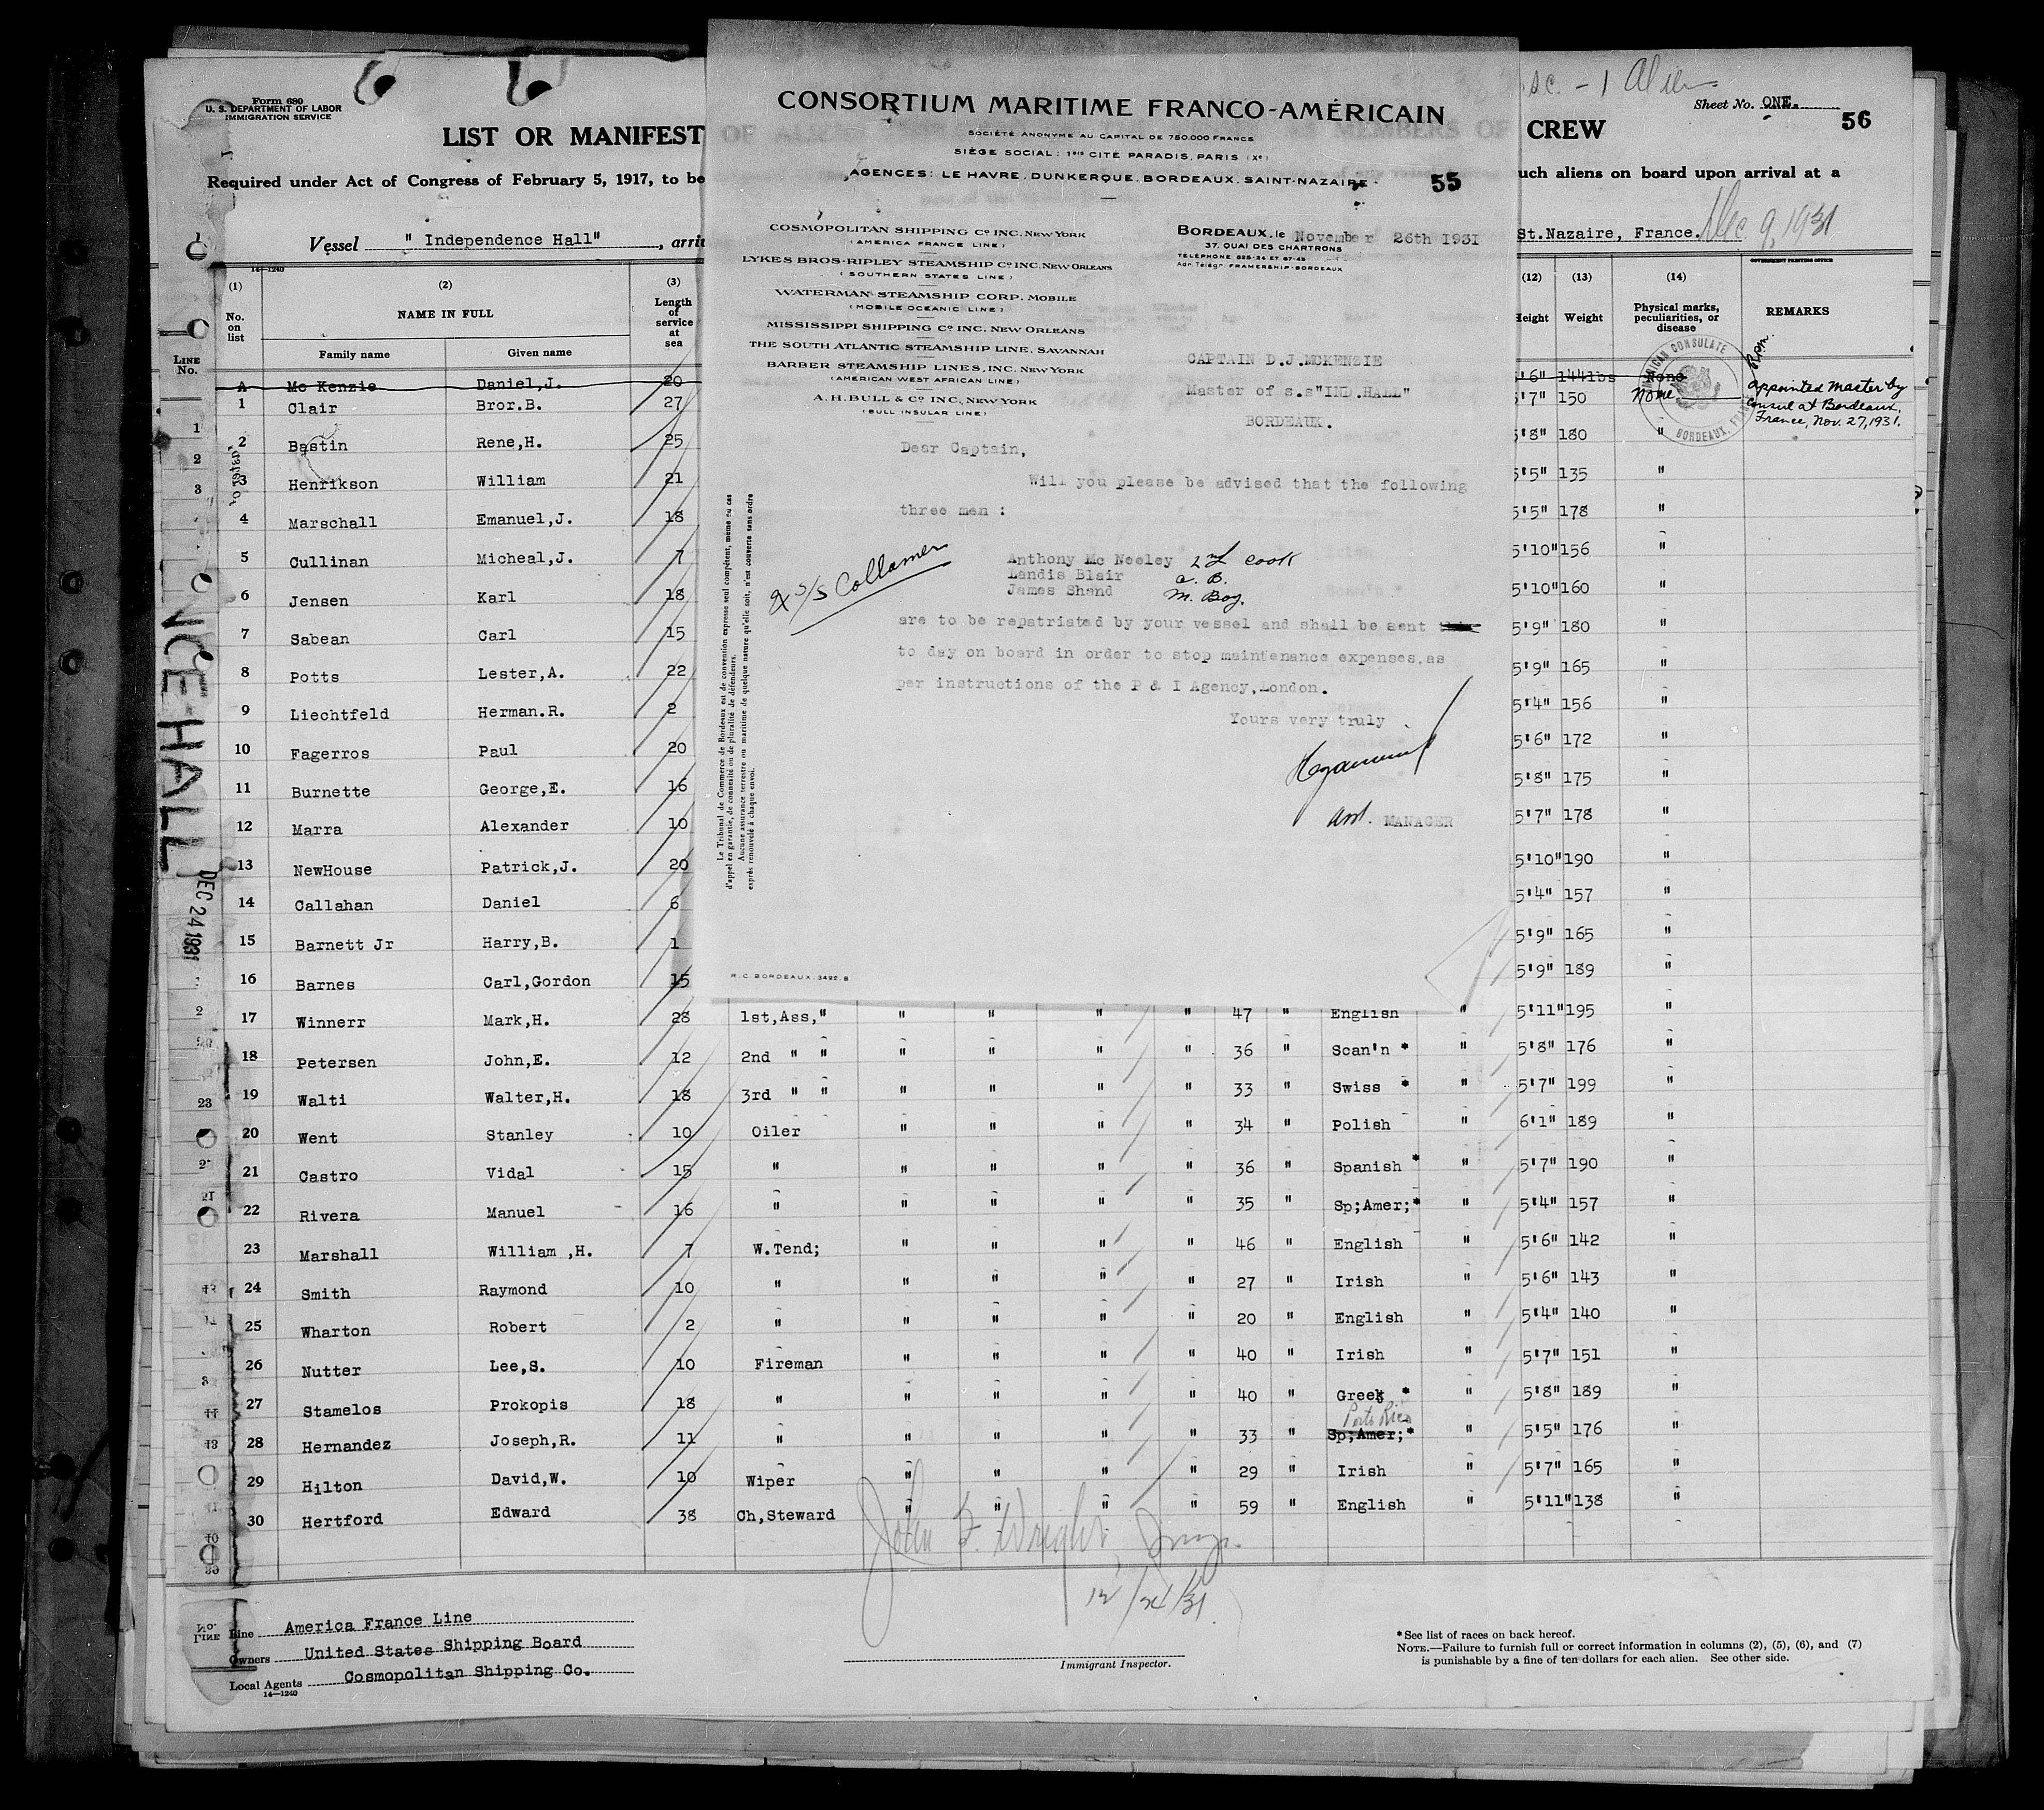 Form 680
U. S. DEPARTMENT OF LABOR
IMMIGRATION SERVICE
LIST OR MANIFEST
CREW
sc. - 1 Alien
Sheet No. ONE.
56
Required under Act of Congress of February 5, 1917, to be
uch aliens on board upon arrival at a
Vessel " Independence Hall"
St.Nazaire, France. Dec 9, 1931
CONSORTIUM MARITIME FRANCO-AMÉRICAIN
SOCIÉTÉ ANONYME AU CAPITAL DE 750.000 FRANCS
SIÈGE SOCIAL: 1 BIS CITÉ PARADIS, PARIS (Xe)
AGENCES: LE HAVRE, DUNKERQUE, BORDEAUX, SAINT-NAZAIRE
55
COSMOPOLITAN SHIPPING Co INC. NEW YORK
(AMERICA FRANCE LINE)
LYKES BROS-RIPLEY STEAMSHIP Co INC. NEW ORLEANS
(SOUTHERN STATES LINE)
WATERMAN STEAMSHIP CORP. MOBILE
(MOBILE OCEANIC LINE)
MISSISSIPPI SHIPPING Co INC. NEW ORLEANS
THE SOUTH ATLANTIC STEAMSHIP LINE, SAVANNAH
BARBER STEAMSHIP LINES, INC. NEW YORK
(AMERICAN WEST AFRICAN LINE)
A.H. BULL & Co INC., NEW YORK
(BULL INSULAR LINE)
BORDEAUX, le November 26th 1931
37, QUAI DES CHARTRONS
TÉLÉPHONE 825-24 ET 67-45
Adr. Télégr. FRAMERSHIP-BORDEAUX
CAPTAIN D.J.MCKENZIE
Master of s.s"IND.HALL"
BORDEAUX.
Dear Captain,
Will you please be advised that the following
three men :
Anthony Mc Neeley 2d cook
Landis Blair a. B.
James Shand M. Boy.
ex S/S Collamer
are to be repatriated by your vessel and shall be sent
to day on board in order to stop maintenance expenses,as
per instructions of the P & I Agency,London.
Yours very truly
Asst. MANAGER
Le Tribunal de Commerce de Bordeaux est de convention expresse seul compétent, meme au cas
d'appel en garantie, de connexité ou de pluralité de défendeurs.
Aucune assurance terrestre ou maritime de quelque nature qu'elle soit, n'est couverte sans ordre
exprès renouvelé à chaque envoi.
R.C. BORDEAUX. 3492. B
14-1240
GOVERNMENT PRINTING OFFICE
(1) (2) (3) (12) (13) (14)
No. on list
NAME IN FULL
Family name Given name
Length of service at sea
Height Weight
Physical marks, peculiarities, or disease
REMARKS
LINE No.
AMERICAN CONSULATE
BORDEAUX, FRANCE
appointed Master by
Consul at Bordeaux,
France, Nov. 27, 1931.
A Mc Kenzie Daniel,J. 20 5'6" 144lbs None
1 Clair Bror.B. 27 5'7" 150 None
2 Bastin Rene,H. 25 5'8" 180 "
3 Henrikson William 21 5'5" 135 "
4 Marschall Emanuel,J. 18 5'5" 178 "
5 Cullinan Micheal,J. 7 5'10" 156 "
6 Jensen Karl 18 5'10" 160 "
7 Sabean Carl 15 5'9" 180 "
8 Potts Lester,A. 22 5'9" 165 "
9 Liechtfeld Herman.R. 2 5'4" 156 "
10 Fagerros Paul 20 5'6" 172 "
11 Burnette George,E. 16 5'8" 175 "
12 Marra Alexander 10 5'7" 178 "
13 NewHouse Patrick,J. 20 5'10" 190 "
14 Callahan Daniel 6 5'4" 157 "
15 Barnett Jr Harry,B. 1 5'9" 165 "
16 Barnes Carl,Gordon 15 5'9" 189 "
17 Winnerr Mark,H. 28 1st,Ass," " " " " 47 " English " 5'11" 195 "
18 Petersen John,E. 12 2nd " " " " " " 36 " Scan'n * " 5'8" 176 "
19 Walti Walter,H. 18 3rd " " " " " " 33 " Swiss * " 5'7" 199 "
20 Went Stanley 10 Oiler " " " " 34 " Polish " 6'1" 189 "
21 Castro Vidal 15 " " " " " 36 " Spanish * " 5'7" 190 "
22 Rivera Manuel 16 " " " " " 35 " Sp;Amer;* " 5'4" 157 "
23 Marshall William ,H. 7 W.Tend; " " " " 46 " English " 5'6" 142 "
24 Smith Raymond 10 " " " " " 27 " Irish " 5'6" 143 "
25 Wharton Robert 2 " " " " " 20 " English " 5'4" 140 "
26 Nutter Lee,S. 10 Fireman " " " " 40 " Irish " 5'7" 151 "
27 Stamelos Prokopis 18 " " " " " 40 " Greek * " 5'8" 189 "
Porto Rico
28 Hernandez Joseph,R. 11 " " " " " 33 " Sp;Amer;* " 5'5" 176 "
29 Hilton David,W. 10 Wiper " " " " 29 " Irish " 5'7" 165 "
30 Hertford Edward 38 Ch,Steward " " " " 59 " English " 5'11" 138 "
NCE HALL
DEC 24 1931
John F. Wright, Insp.
12/24/31
Immigrant Inspector.
Line America France Line
Owners United States Shipping Board
Local Agents Cosmopolitan Shipping Co.
14-1240
* See list of races on back hereof.
NOTE.—Failure to furnish full or correct information in columns (2), (5), (6), and (7)
is punishable by a fine of ten dollars for each alien. See other side.